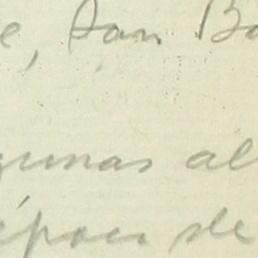 e, San Ba
gunas al
épocas de